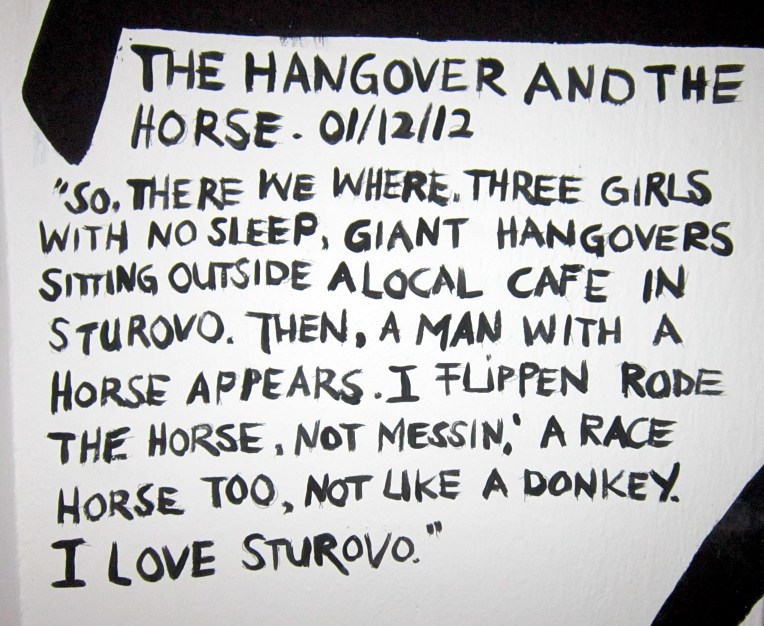 THE HANGOVER AND THE
HORSE. 01/12/12
"SO, THERE WE WHERE. THREE GIRLS
WITH NO SLEEP, GIANT HANGOVERS
SITTING OUTSIDE A LOCAL CAFE IN
STUROVO. THEN, A MAN WITH A
HORSE APPEARS. I FLIPPEN RODE
THE HORSE, NOT MESSIN,' A RACE
HORSE TOO, NOT LIKE A DONKEY.
I LOVE STUROVO."